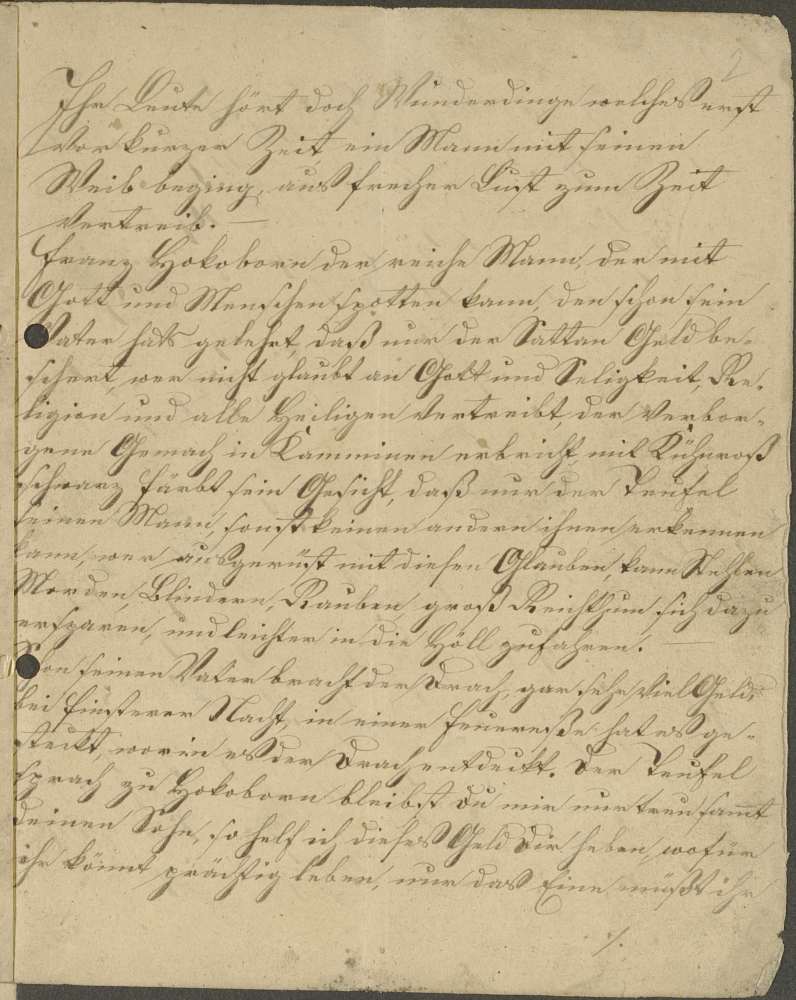 2
Ihr Leute hört doch Wunderdinge welches erst
vor kurzer Zeit, ein Mann mit seinen
Weib beging, aus frecher Lust zum Zeit
Vertreib. —
Franz Hokoborn der reiche Mann, der mit
Gott und Menschen spotten kann, den schon sein
Vater hats gelehrt, daß nur der Sattan Geld be-
schert, wer nicht glaubt an Gott und Seligkeit, Re-
ligion und alle Heiligen Vertreibt, der Verbor-
gene Gemach in Kamminen erbricht, mit Kühnroß
schwarz färbt sein Gesicht, daß nur der Teufel
seinen Mann, sonst keinen andern ihnen erkennen
kann, wer ausgerüst mit diesen Glauben, kann Stehlen
Morden, Blündern, Rauben groß Reichthum sich dazu
ersparen, und leichter in die Höll zufahren. —
Schon seinen Vater bracht der Drach, gar sehr viel Geld,
bei finsterer Nacht, in einer Feueresse hat es ge-
steckt, worin es der Drach entdeckt. Der Teufel
sprach zu Hokoborn bleibst Du mir nur treu sammt
deinen Sohn, so helf ich dieses Geld Dir heben, wofür
ihr könnt prächtig leben, nur das Eine müßt ihr
./.